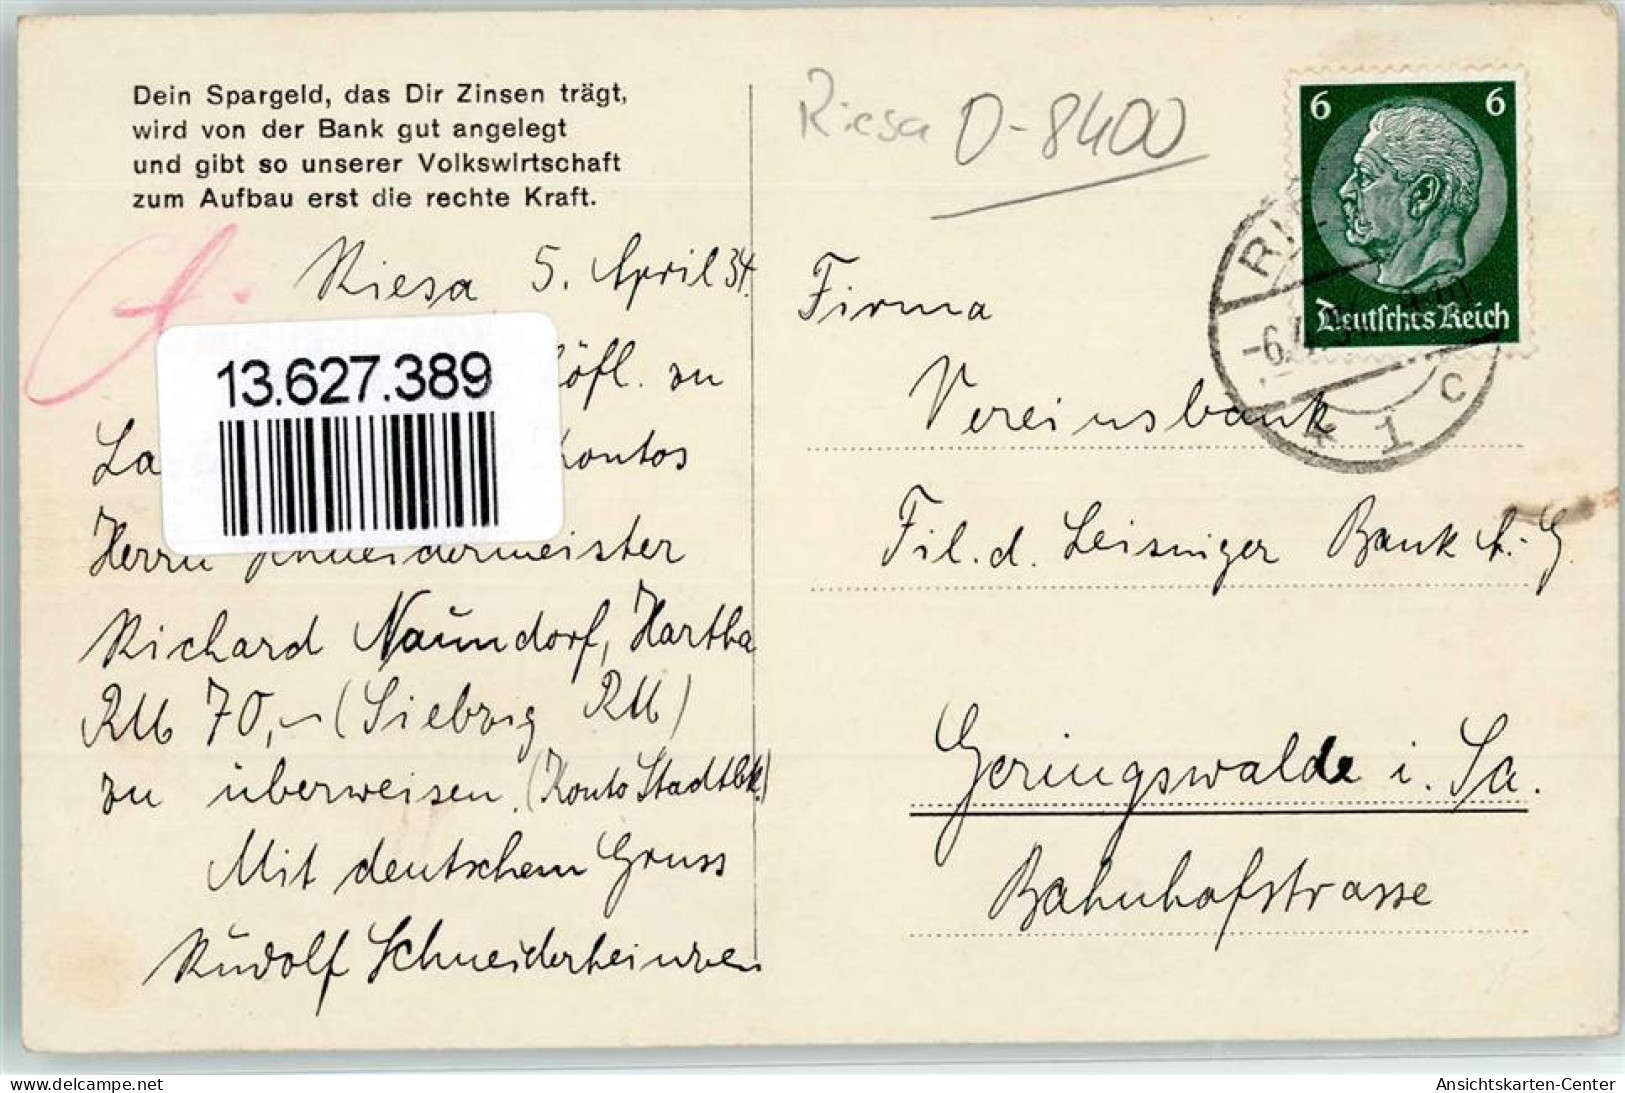 Dein Spargeld, das Dir Zinsen trägt,
wird von der Bank gut angelegt
und gibt so unserer Volkswirtschaft
zum Aufbau erst die rechte Kraft.
Riesa, 5. April 34.
höfl. zu
La
Kontos
Herrn Schneidermeister
Richard Naundorf, Hartha
RM 70,- (Siebzig RM)
zu überweisen. (Konto Stadtbk.)
Mit deutschem Gruss
Rudolf
13.627.389
Riesa O-8400
6 6
Deutsches Reich
1 c
Firma
Vereinsbank
Fil. d. Leisniger Bank A.-G.
Geringswalde i. Sa.
Bahnhofstrasse
delcampe.net
Ansichtskarten-Center